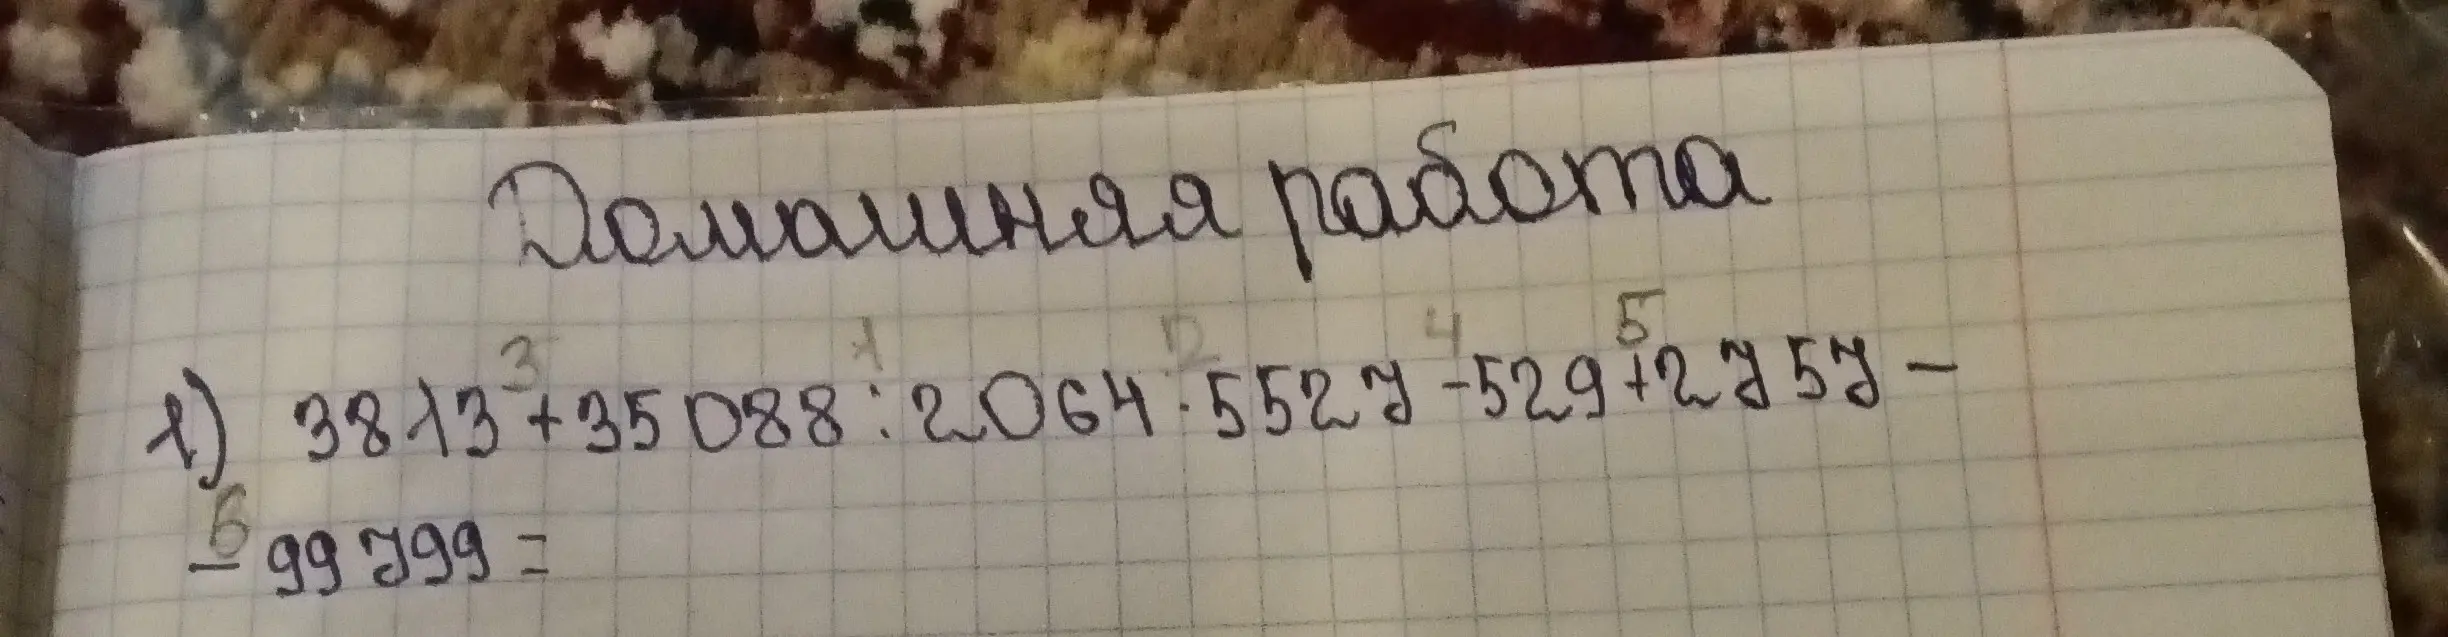 Домашняя работа
3 1 2 4 5
1) 3813+35088:2064·5527-529+2757-
6
-99799=